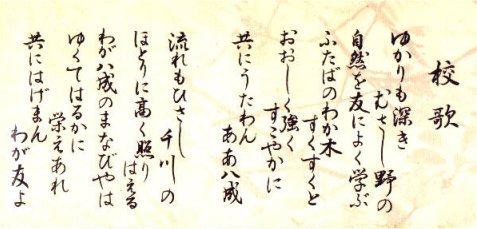 校歌
ゆかりも深き
むさし野の
自然を友によく学ぶ
ふたばのわか木
すくすくと
おおしく強く
すこやかに
共にうたわん
ああ八成
流れもひさし
千川の
ほとりに高く照り
はえる
わが八成のまなびやは
ゆくてはるかに
栄えあれ
共にはげまん
わが友よ